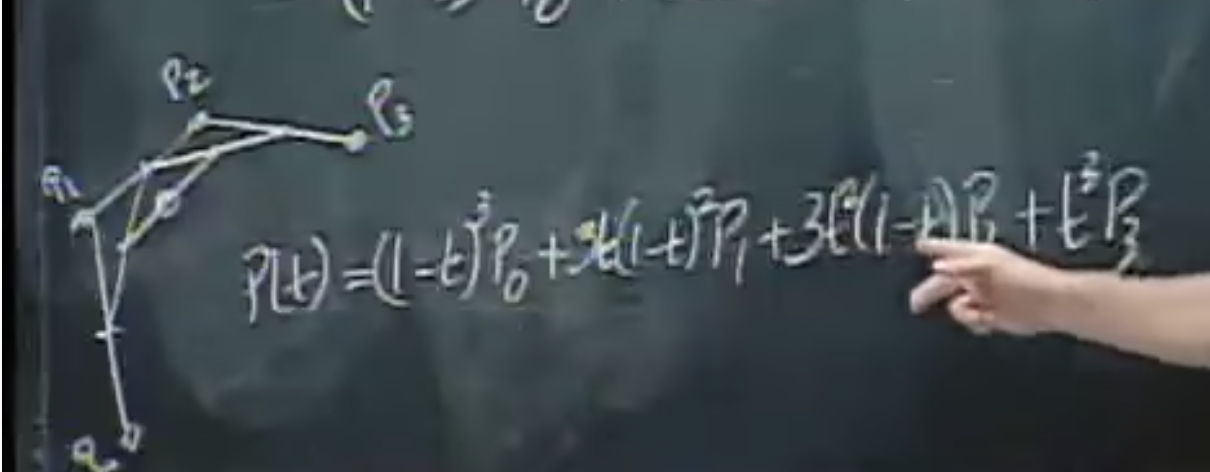 P2
P3
P1
P(t)=(1-t)³P₀+3t(1-t)²P₁+3t²(1-t)P₁+t³P₃